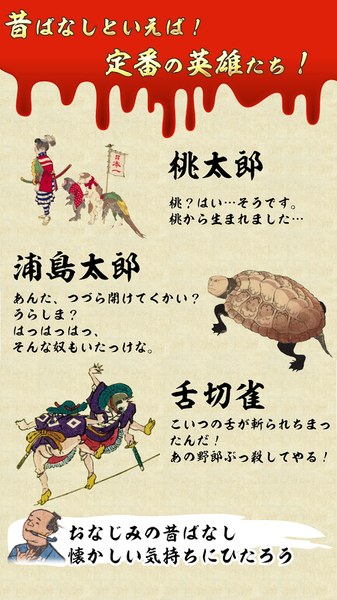 昔ばなしといえば！
定番の英雄たち！
日本一
桃太郎
桃？はい…そうです。
桃から生まれました…
浦島太郎
あんた、つづら開けてくかい？
うらしま？
はっはっはっ、
そんな奴もいたっけな。
舌切雀
こいつの舌が斬られちまっ
たんだ！
あの野郎ぶっ殺してやる！
おなじみの昔ばなし
懐かしい気持ちにひたろう